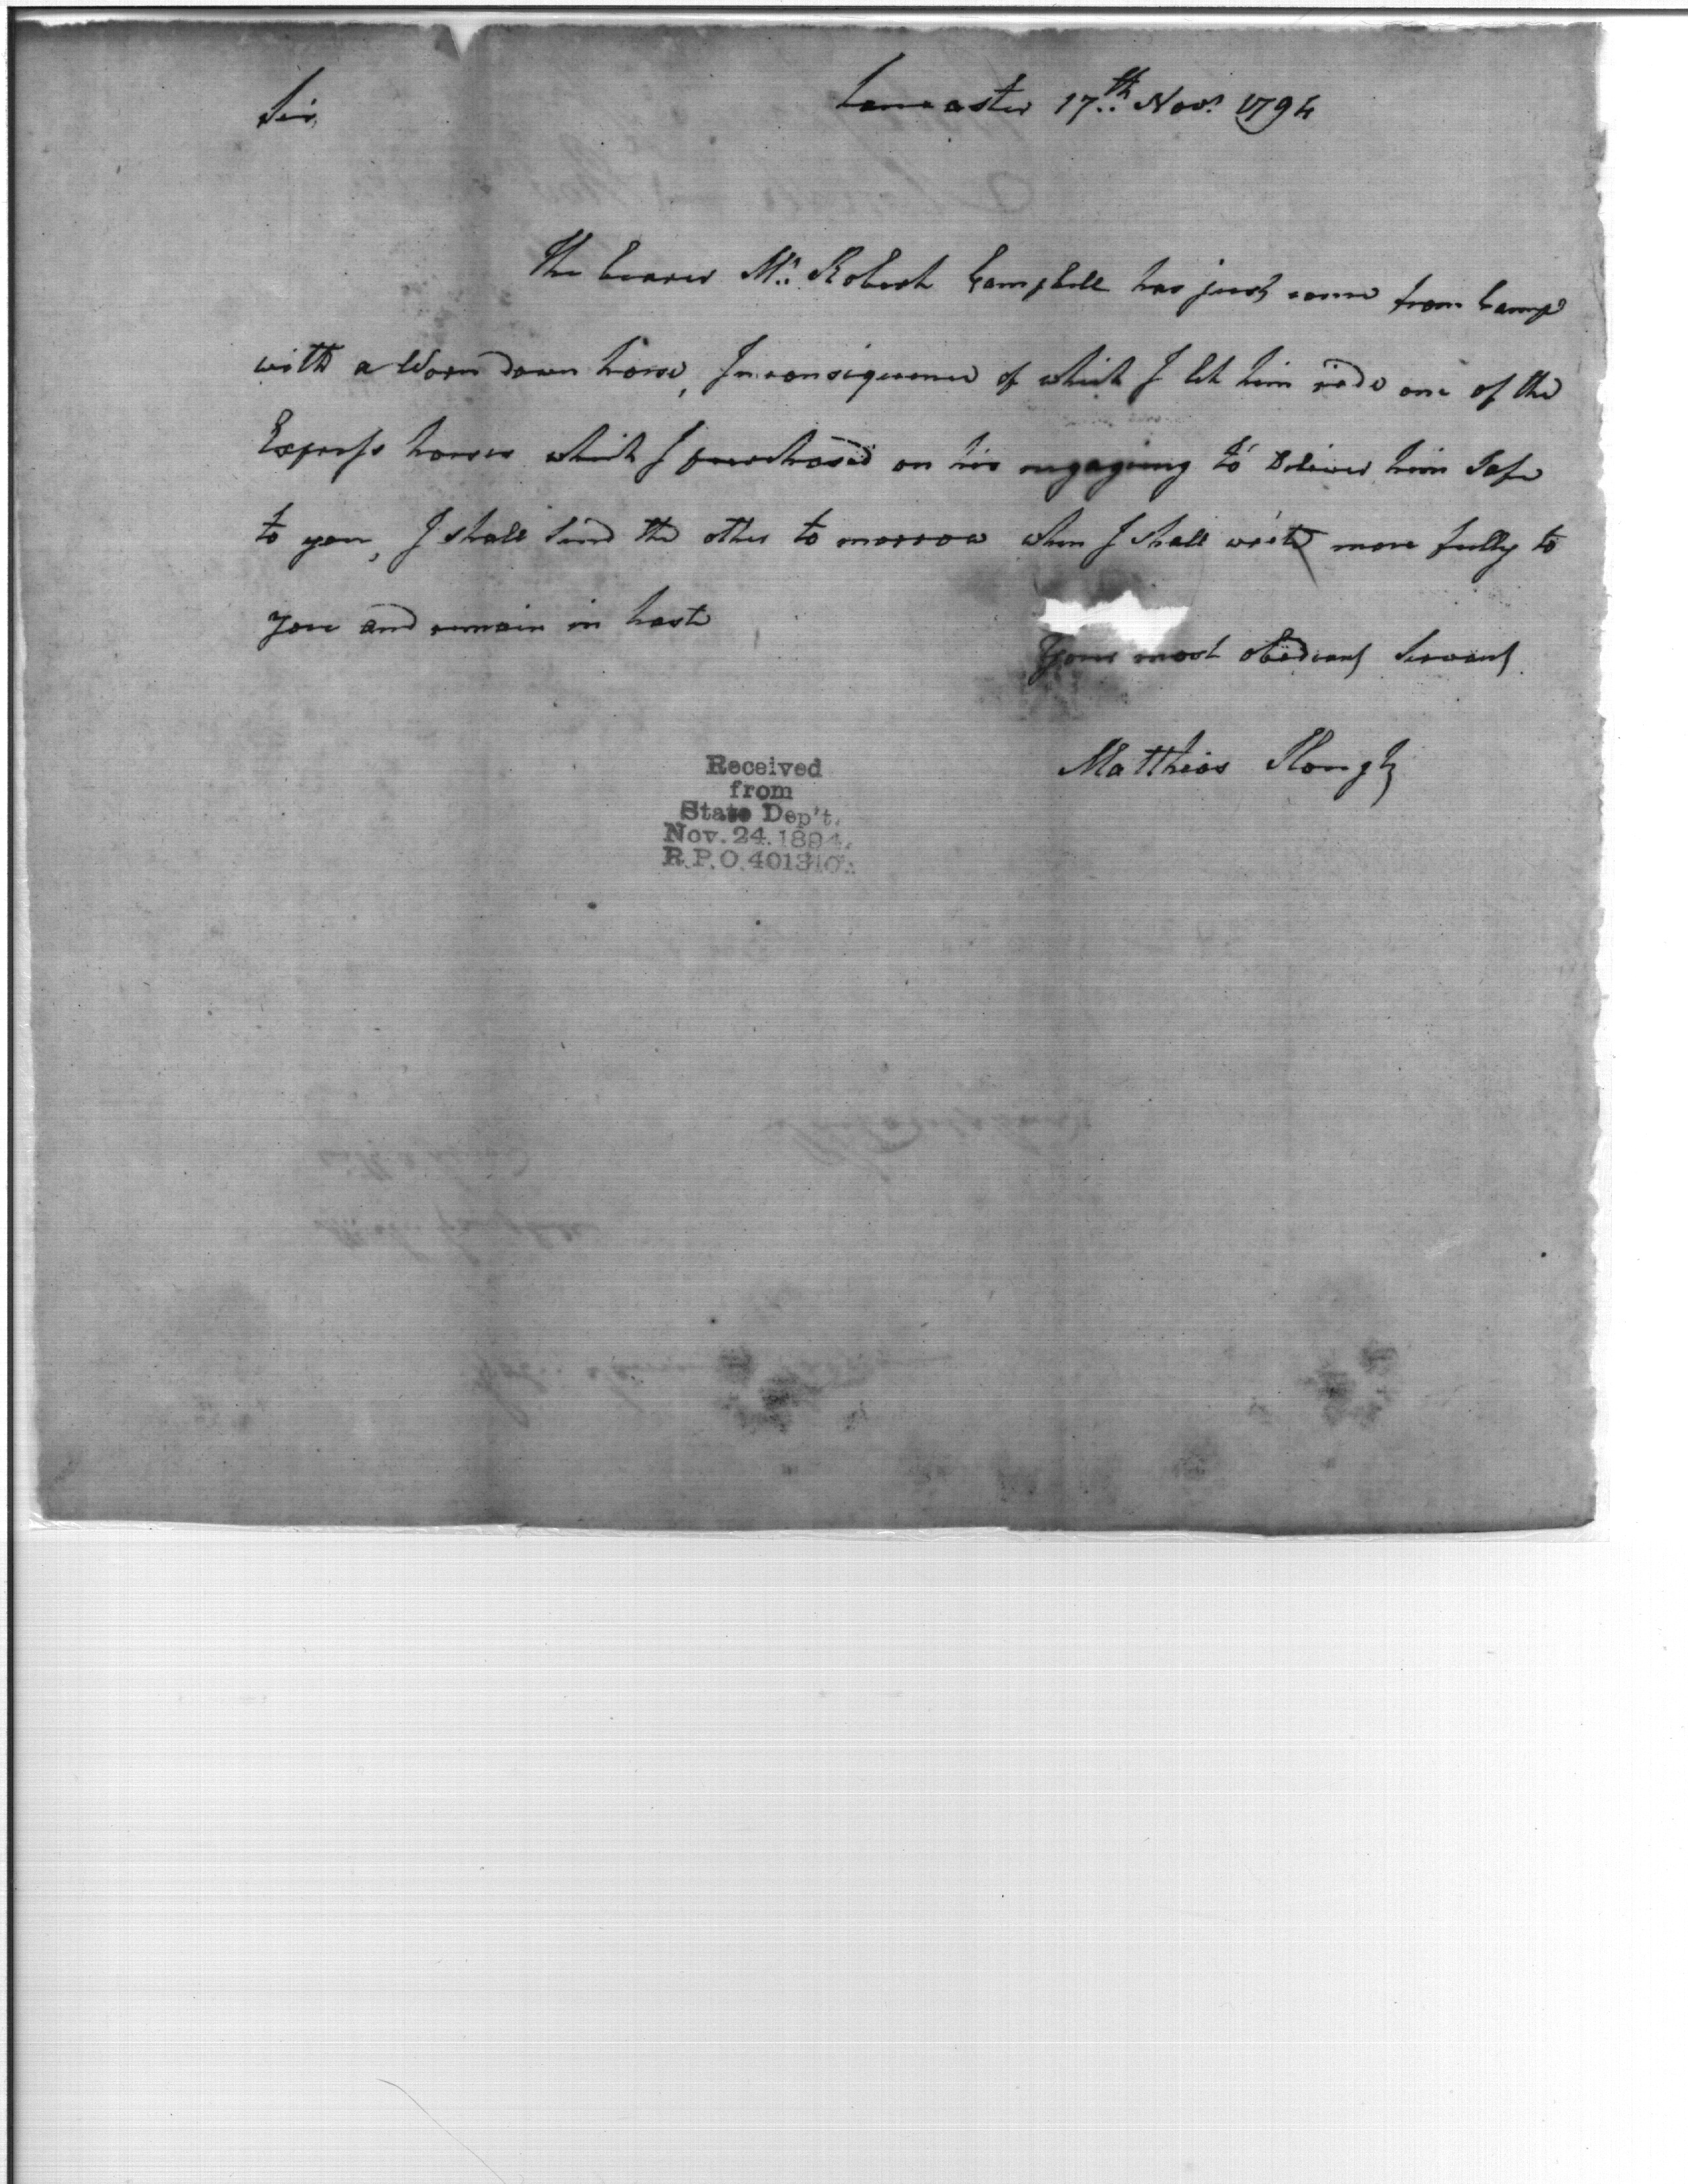 Lancaster 17th Novr 1794
Sir
The bearer Mr. Robert Campbell has just come from Camp
with a Worn down horse, In consequence of which I let him ride one of the
Express horses which I purchased on his engageing to Deliver him Safe
to you, I shall Send the other to morrow when I shall write more fully to
you and remain in haste
Your most obedient Servant
Matthias Slough
Received
from
State Dep't.
Nov. 24. 1894.
R.P.O. 401340.